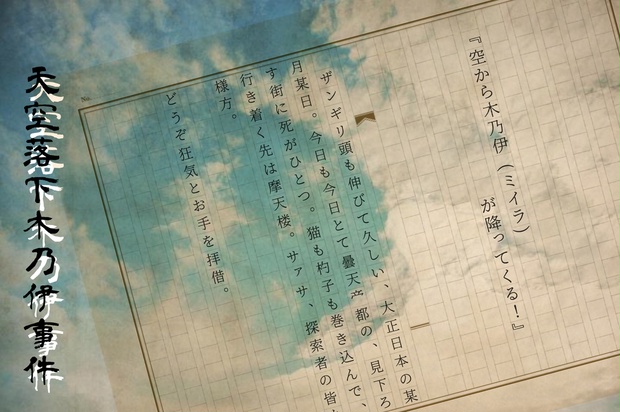 『空から木乃伊（ミイラ）
が降ってくる！』
ザンギリ頭も伸びて久しい、大正日本の某
月某日。今日も今日とて曇天都の、見下ろ
す街に死がひとつ。猫も杓子も巻き込んで、
行き着く先は摩天楼。サァサ、探索者の皆
様方。
どうぞ狂気とお手を拝借。
No.
天空落下木乃伊事件